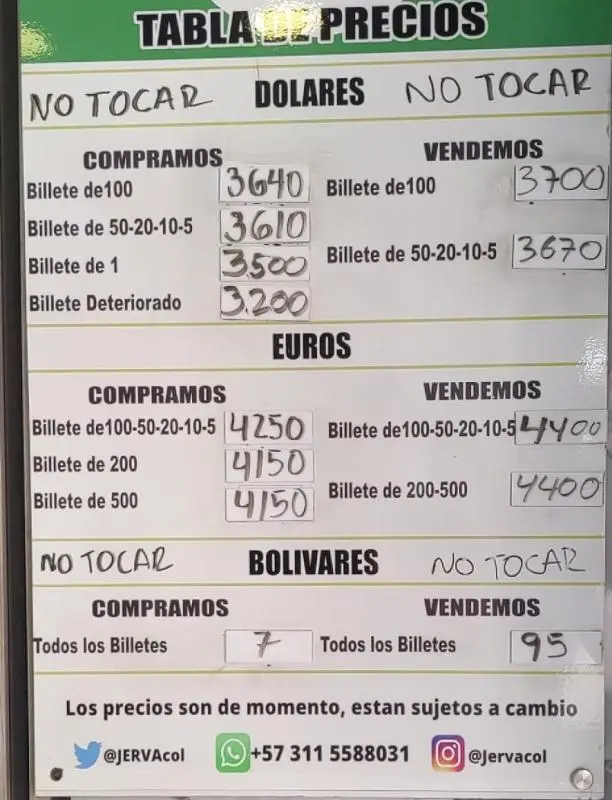 TABLA DE PRECIOS
NO TOCAR DOLARES NO TOCAR
COMPRAMOS VENDEMOS
Billete de100 3640 Billete de100 3700
Billete de 50-20-10-5 3610 Billete de 50-20-10-5 3670
Billete de 1 3.500
Billete Deteriorado 3.200
EUROS
COMPRAMOS VENDEMOS
Billete de100-50-20-10-5 4250 Billete de100-50-20-10-5 4400
Billete de 200 4150
Billete de 500 4150 Billete de 200-500 4400
NO TOCAR BOLIVARES NO TOCAR
COMPRAMOS VENDEMOS
Todos los Billetes 7 Todos los Billetes 95
Los precios son de momento, estan sujetos a cambio
@JERVAcol +57 311 5588031 @Jervacol